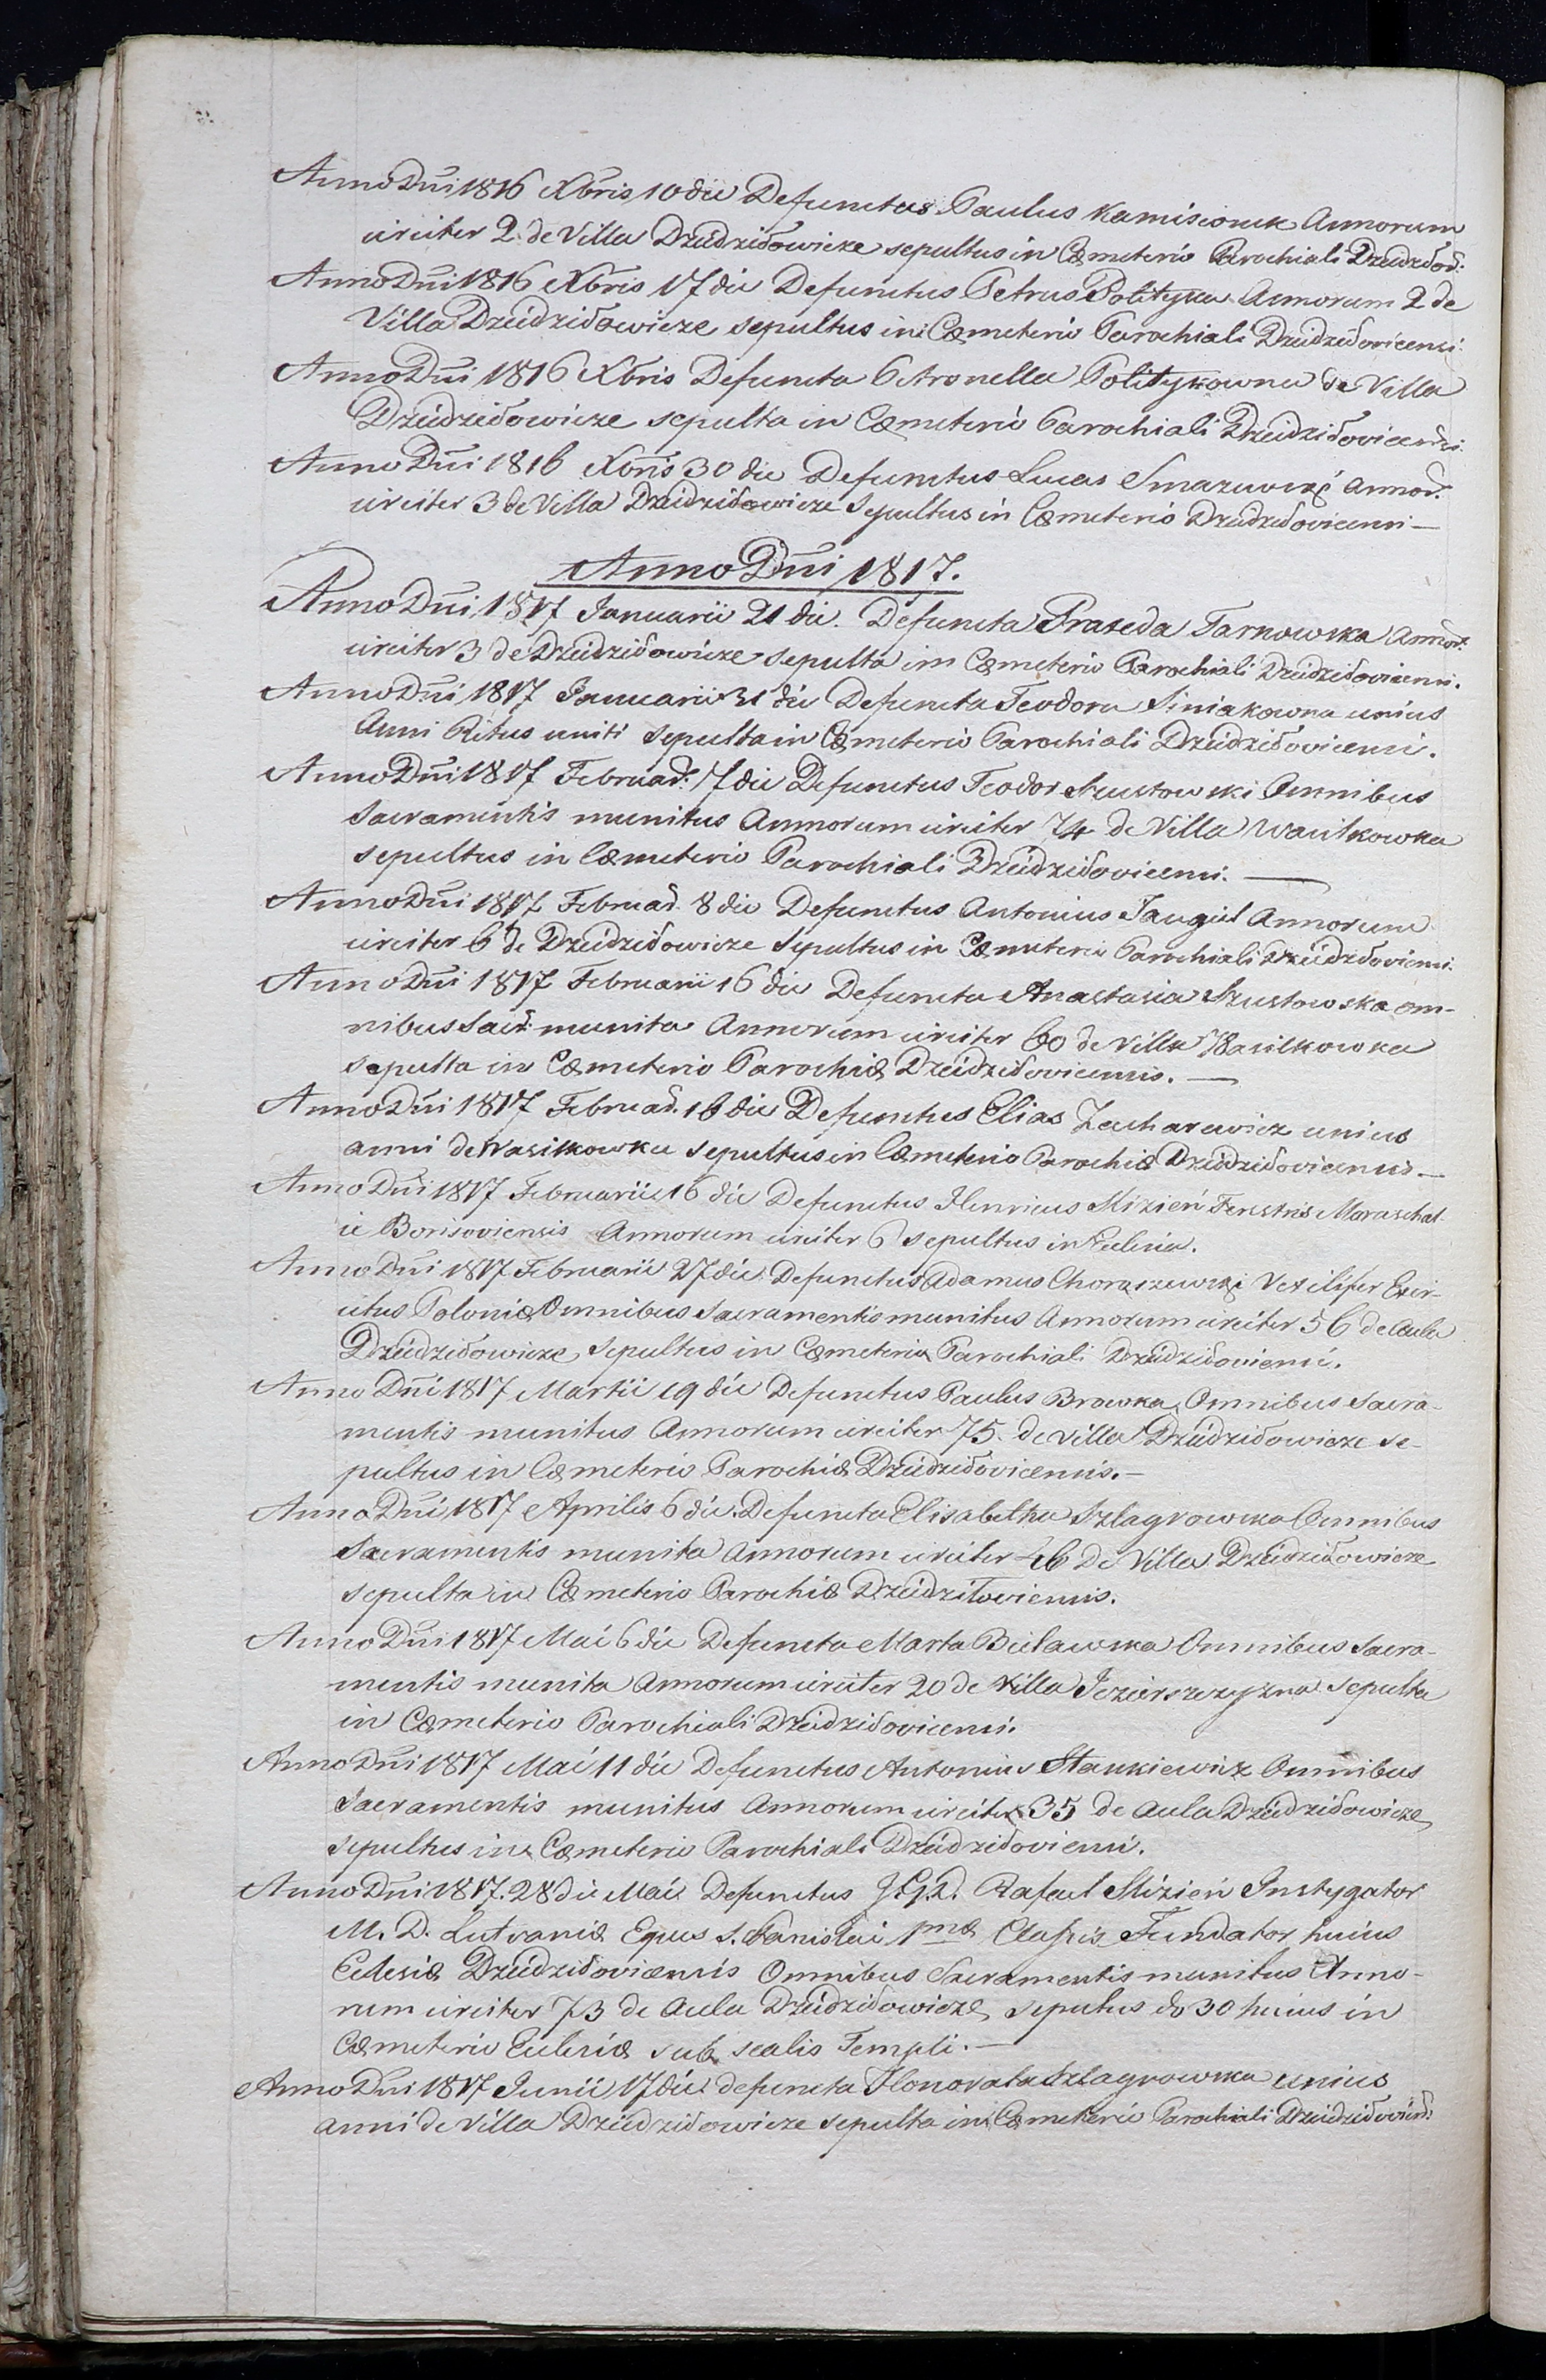 Anno Dñi 1816 Xbris 10 die Defunctus Paulus Kamisionek Annorum
circiter 2 de Villa Dziedziłowicze sepultus in Cœmeterio Parochiali Dziedziłov:
Anno Dñi 1816 Xbris 17 die Defunctus Petrus Polityka Annorum 2 de
Villa Dziedziłowicze sepultus in Cœmeterio Parochiali Dziedziłovicensi.
Anno Dñi 1816 Xbris Defuncta Petronella Politykowna de Villa
Dziedziłowicze sepulta in Cœmeterio Parochiali Dziedziłovicensi.
Anno Dñi 1816 Xbris 30 die Defunctus Lucas Annor:
circiter 3 de Villa Dziedziłowicze Sepultus in Cœmeterio Dziedziłovicensi —
Anno Dñi 1817.
Anno Dñi 1817 Januarii 21 die. Defuncta Praxeda Tarnowska Annor:
circiter 3 de Dziedziłowicze sepulta in Cœmeterio Parochiali Dziedziłovicensi.
Anno Dñi 1817 Januarii 31 die Defuncta Teodora Siniakowna unius
Anni Ritus uniti Sepulta in Cœmeterio Parochiali Dziedziłovicensi.
Anno Dñi 1817 Februar: 7 die Defunctus Teodor Szustowski Omnibus
Sacramentis munitus Annorum circiter 74 de Villa Wasilkowka
sepultus in Cœmeterio Parochiali Dziedziłovicensi. —
Anno Dñi 1817 Februar. 8 die Defunctus Antonius Jangiel Annorum
circiter 6 de Dziedziłowicze Sepultus in Cœmeterio Parochiali Dziedziłovicensi.
Anno Dñi 1817 Februarii 16 die Defuncta Anastasia Szustowska om-
nibus Sacr: munita Annorum circiter 60 de Villa Wasilkowka
sepulta in Cœmeterio Parochiæ Dziedziłovicensis. —
Anno Dñi 1817 Februar. 16 die Defunctus Elias Zacharewicz unius
anni de Wasilkowka sepultus in Cœmeterio Parochiæ Dziedziłovicensis —
Anno Dñi 1817 Februarii 16 die Defunctus Henricus Slizień Maraschal-
ci Borisoviensis Annorum circiter 6 sepultus in Eclesia.
Anno Dñi 1817 Februarii 27 die Defunctus Adamus Chorąszewski Vexilifer Exer-
citus Poloniæ Omnibus Sacramentis munitus Annorum circiter 56 de Aula
Dziedziłowicze Sepultus in Cœmeterio Parochiali Dziedziłoviensi.
Anno Dñi 1817 Martii 19 die Defunctus Paulus Browka Omnibus Sacra-
mentis munitus Annorum circiter 75. de Villa Dziedziłowicze se-
pultus in Cœmeterio Parochiæ Dziedziłovicensis. —
Anno Dñi 1817 Aprilis 6 die. Defuncta Elisabetha Szlagrowska Omnibus
Sacramentis munita Annorum circiter de Villa Dziedziłowicze
sepulta in Cœmeterio Parochiæ Dziedziłoviensis.
Anno Dñi 1817 Mai 6 die Defuncta Marta Bielawska Omnibus Sacra-
mentis munita Annorum circiter 20 de Villa Jezierszczyzna sepulta
in Cœmeterio Parochiali Dziedziłovicensi.
Anno Dñi 1817 Mai 11 die Defunctus Antonius Stankiewicz Omnibus
Sacramentis munitus Annorum circiter 35 de Aula Dziedziłowicze
sepultus in Cœmeterio Parochiali Dziedziłoviensi.
Anno Dñi 1817. 28 die Mai Defunctus Rafael Slizień Instygator
M. D. Lutvaniæ Eques S. Stanislai 1mæ Classis Fundator huius
Eclesiæ Dziedziłoviensis Omnibus Sacramentis munitus Anno-
rum circiter 73 de Aula Dziedziłowicze, sepultus do 30 huius in
Cœmeterio Eclesiæ sub scalis Templi. —
Anno Dñi 1817 Junii 17 die defuncta Honorata Szlagrowska unius
anni de Villa Dziedziłowicze sepulta in Cœmeterio Parochiali Dziedziłovien: